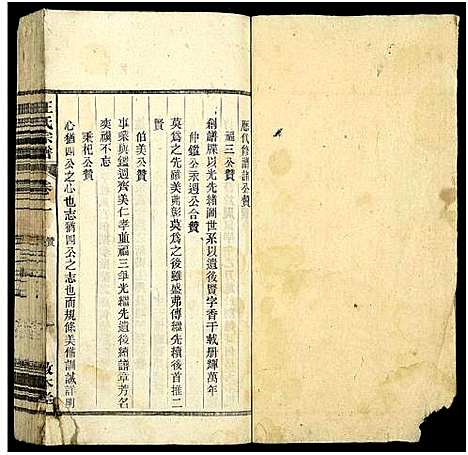 歷代修譜諸公贊
福三公贊
創譜牒以光先緒圖世系以遺後賢字香千載册輝萬年
仲鑑公汞遇公合贊
莫爲之先雖美弗彰莫爲之後雖盛弗傳繼先績後首推二
賢
伯美公贊
事業與鑑遇齊美仁孝重福三爭光繼先遺後績譜章芳名
奕禩不忘
秉杞公贊
心猶四公之心也志猶四公之志也而規條美備訓誡詳明
王氏宗譜
卷一
贊
一